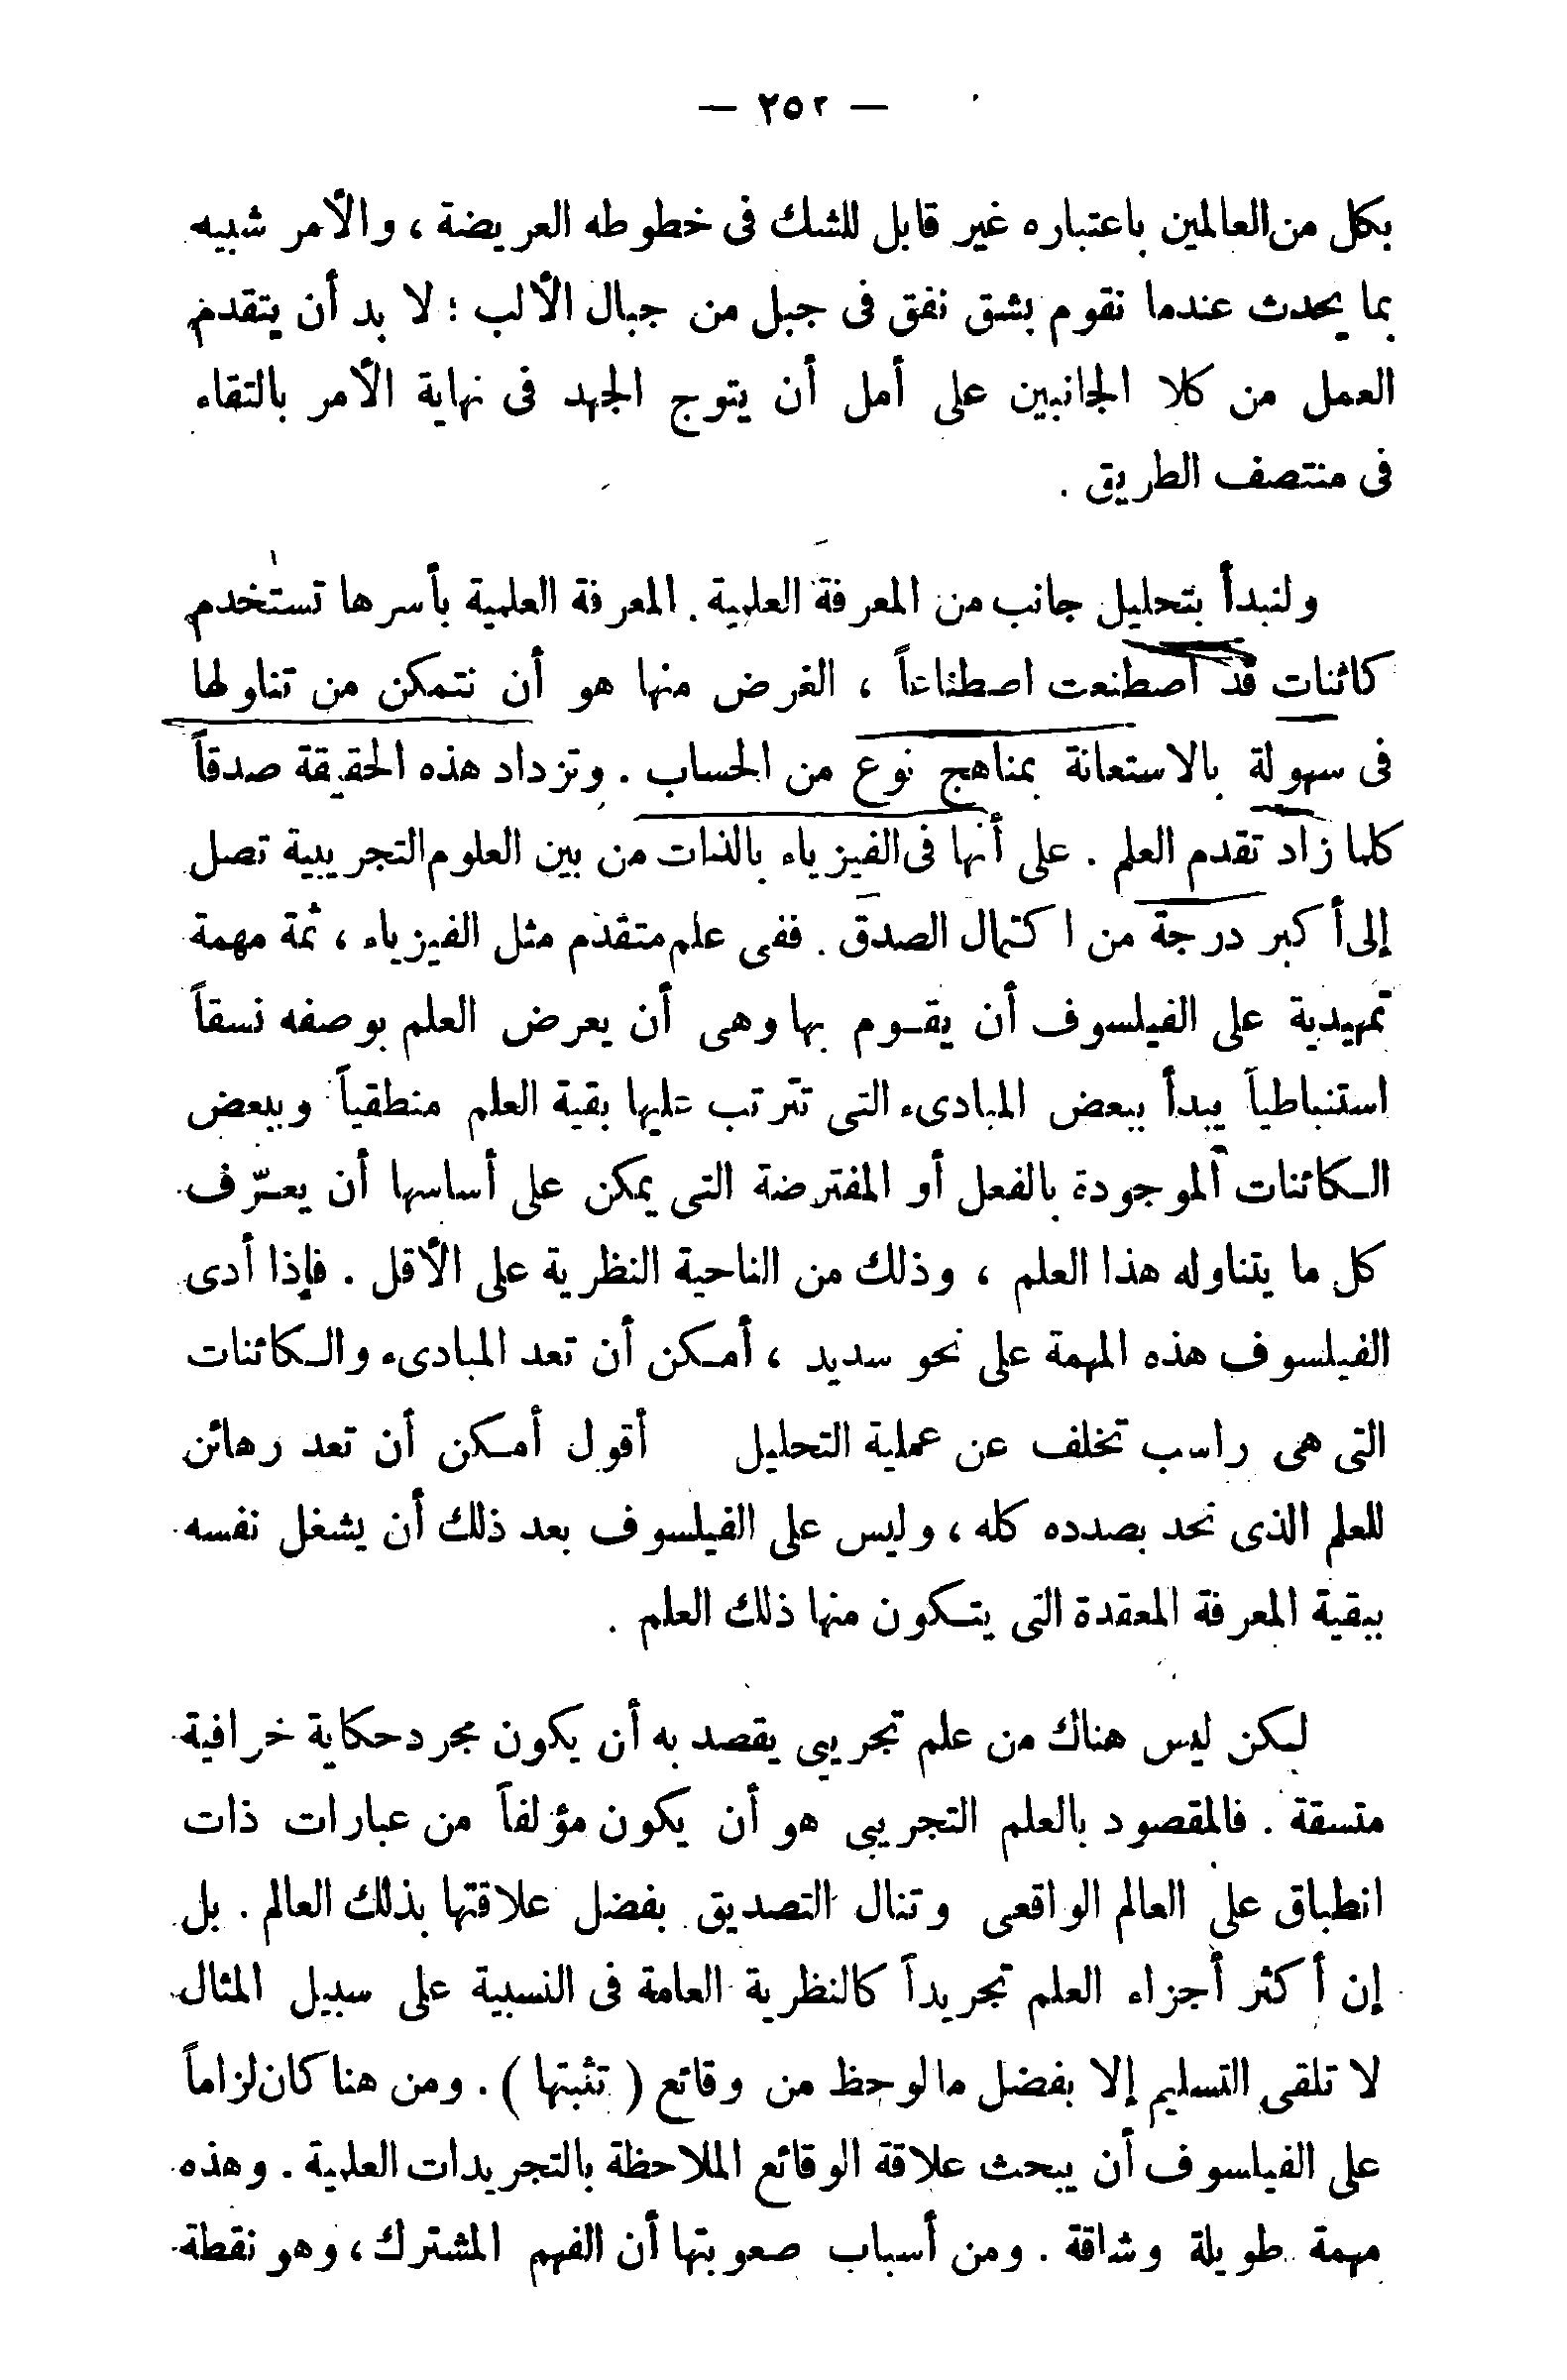 — ٢٥٢ —
بكل من العالمين باعتباره غير قابل للشك فى خطوطه العريضة ، والأمر شبيه
بما يحدث عندما نقوم بشق نفق فى جبل من جبال الألب ؛ لا بد أن يتقدم
العمل من كلا الجانبين على أمل أن يتوج الجهد فى نهاية الأمر بالتقاء
فى منتصف الطريق .
ولنبدأ بتحليل جانب من المعرفة العلمية . المعرفة العلمية بأسرها تستخدم
كائنات قد اصطنعت اصطناعاً ، الغرض منها هو أن نتمكن من تناولها
فى سهولة بالاستعانة بمناهج نوع من الحساب . وتزداد هذه الحقيقة صدقاً
كلما زاد تقدم العلم . على أنها فى الفيزياء بالذات من بين العلوم التجريبية تصل
إلى أكبر درجة من اكتمال الصدق . ففى علم متقدم مثل الفيزياء ، ثمة مهمة
تمهيدية على الفيلسوف أن يقـوم بها وهى أن يعرض العلم بوصفه نسقاً
استنباطياً يبدأ ببعض المبادىء التى تترتب عليها بقية العلم منطقياً وببعض
الـكائنات الموجودة بالفعل أو المفترضة التى يمكن على أساسها أن يعـرّف
كل ما يتناوله هذا العلم ، وذلك من الناحية النظرية على الأقل . فإذا أدى
الفيلسوف هذه المهمة على نحو سديد ، أمـكن أن تعد المبادىء والـكائنات
التى هى راسب تخلف عن عملية التحليل أقول أمـكن أن تعد رهائن
للعلم الذى نحد بصدده كله ، وليس على الفيلسوف بعد ذلك أن يشغل نفسه
ببقية المعرفة المعقدة التى يتـكون منها ذلك العلم .
لـكن ليس هناك من علم تجريبى يقصد به أن يكون مجرد حكاية خرافية
متسقة . فالمقصود بالعلم التجريبى هو أن يكون مؤلفاً من عبارات ذات
انطباق على العالم الواقعى وتنال التصديق بفضل علاقتها بذلك العالم . بل
إن أكثر أجزاء العلم تجريداً كالنظرية العامة فى النسبية على سبيل المثال
لا تلقى التسليم إلا بفضل ما لوحظ من وقائع ( تثبتها ) . ومن هنا كان لزاماً
على الفيلسوف أن يبحث علاقة الوقائع الملاحظة بالتجريدات العلمية . وهذه
مهمة طويلة وشاقة . ومن أسباب صعوبتها أن الفهم المشترك ، وهو نقطة